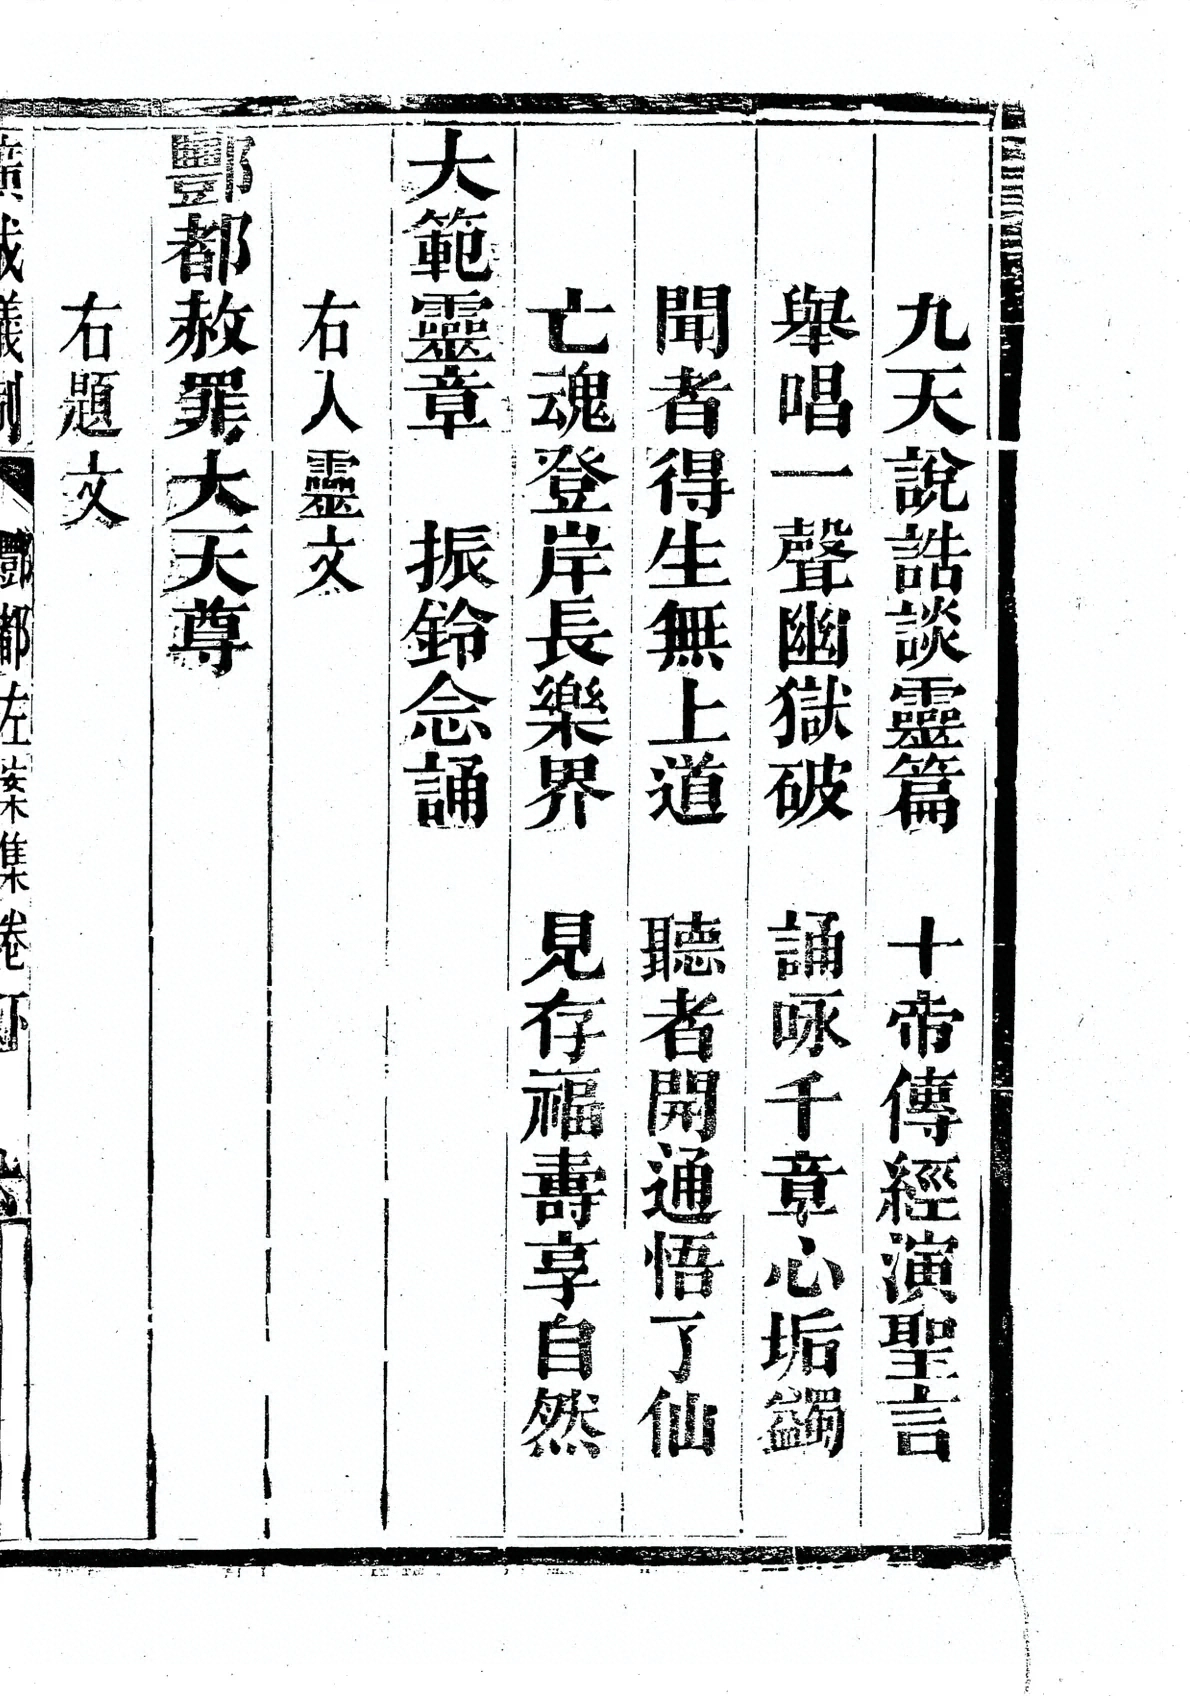 九天說誥談靈篇　十帝傳經演聖言
舉唱一聲幽獄破　誦咏千章心垢蠲
聞者得生無上道　聽者開通悟了仙
亡魂登岸長樂界　見存福壽享自然
大範靈章　振鈴念誦
右入靈文
酆都赦罪大天尊
右題文
廣成儀制　酆都左案集卷下